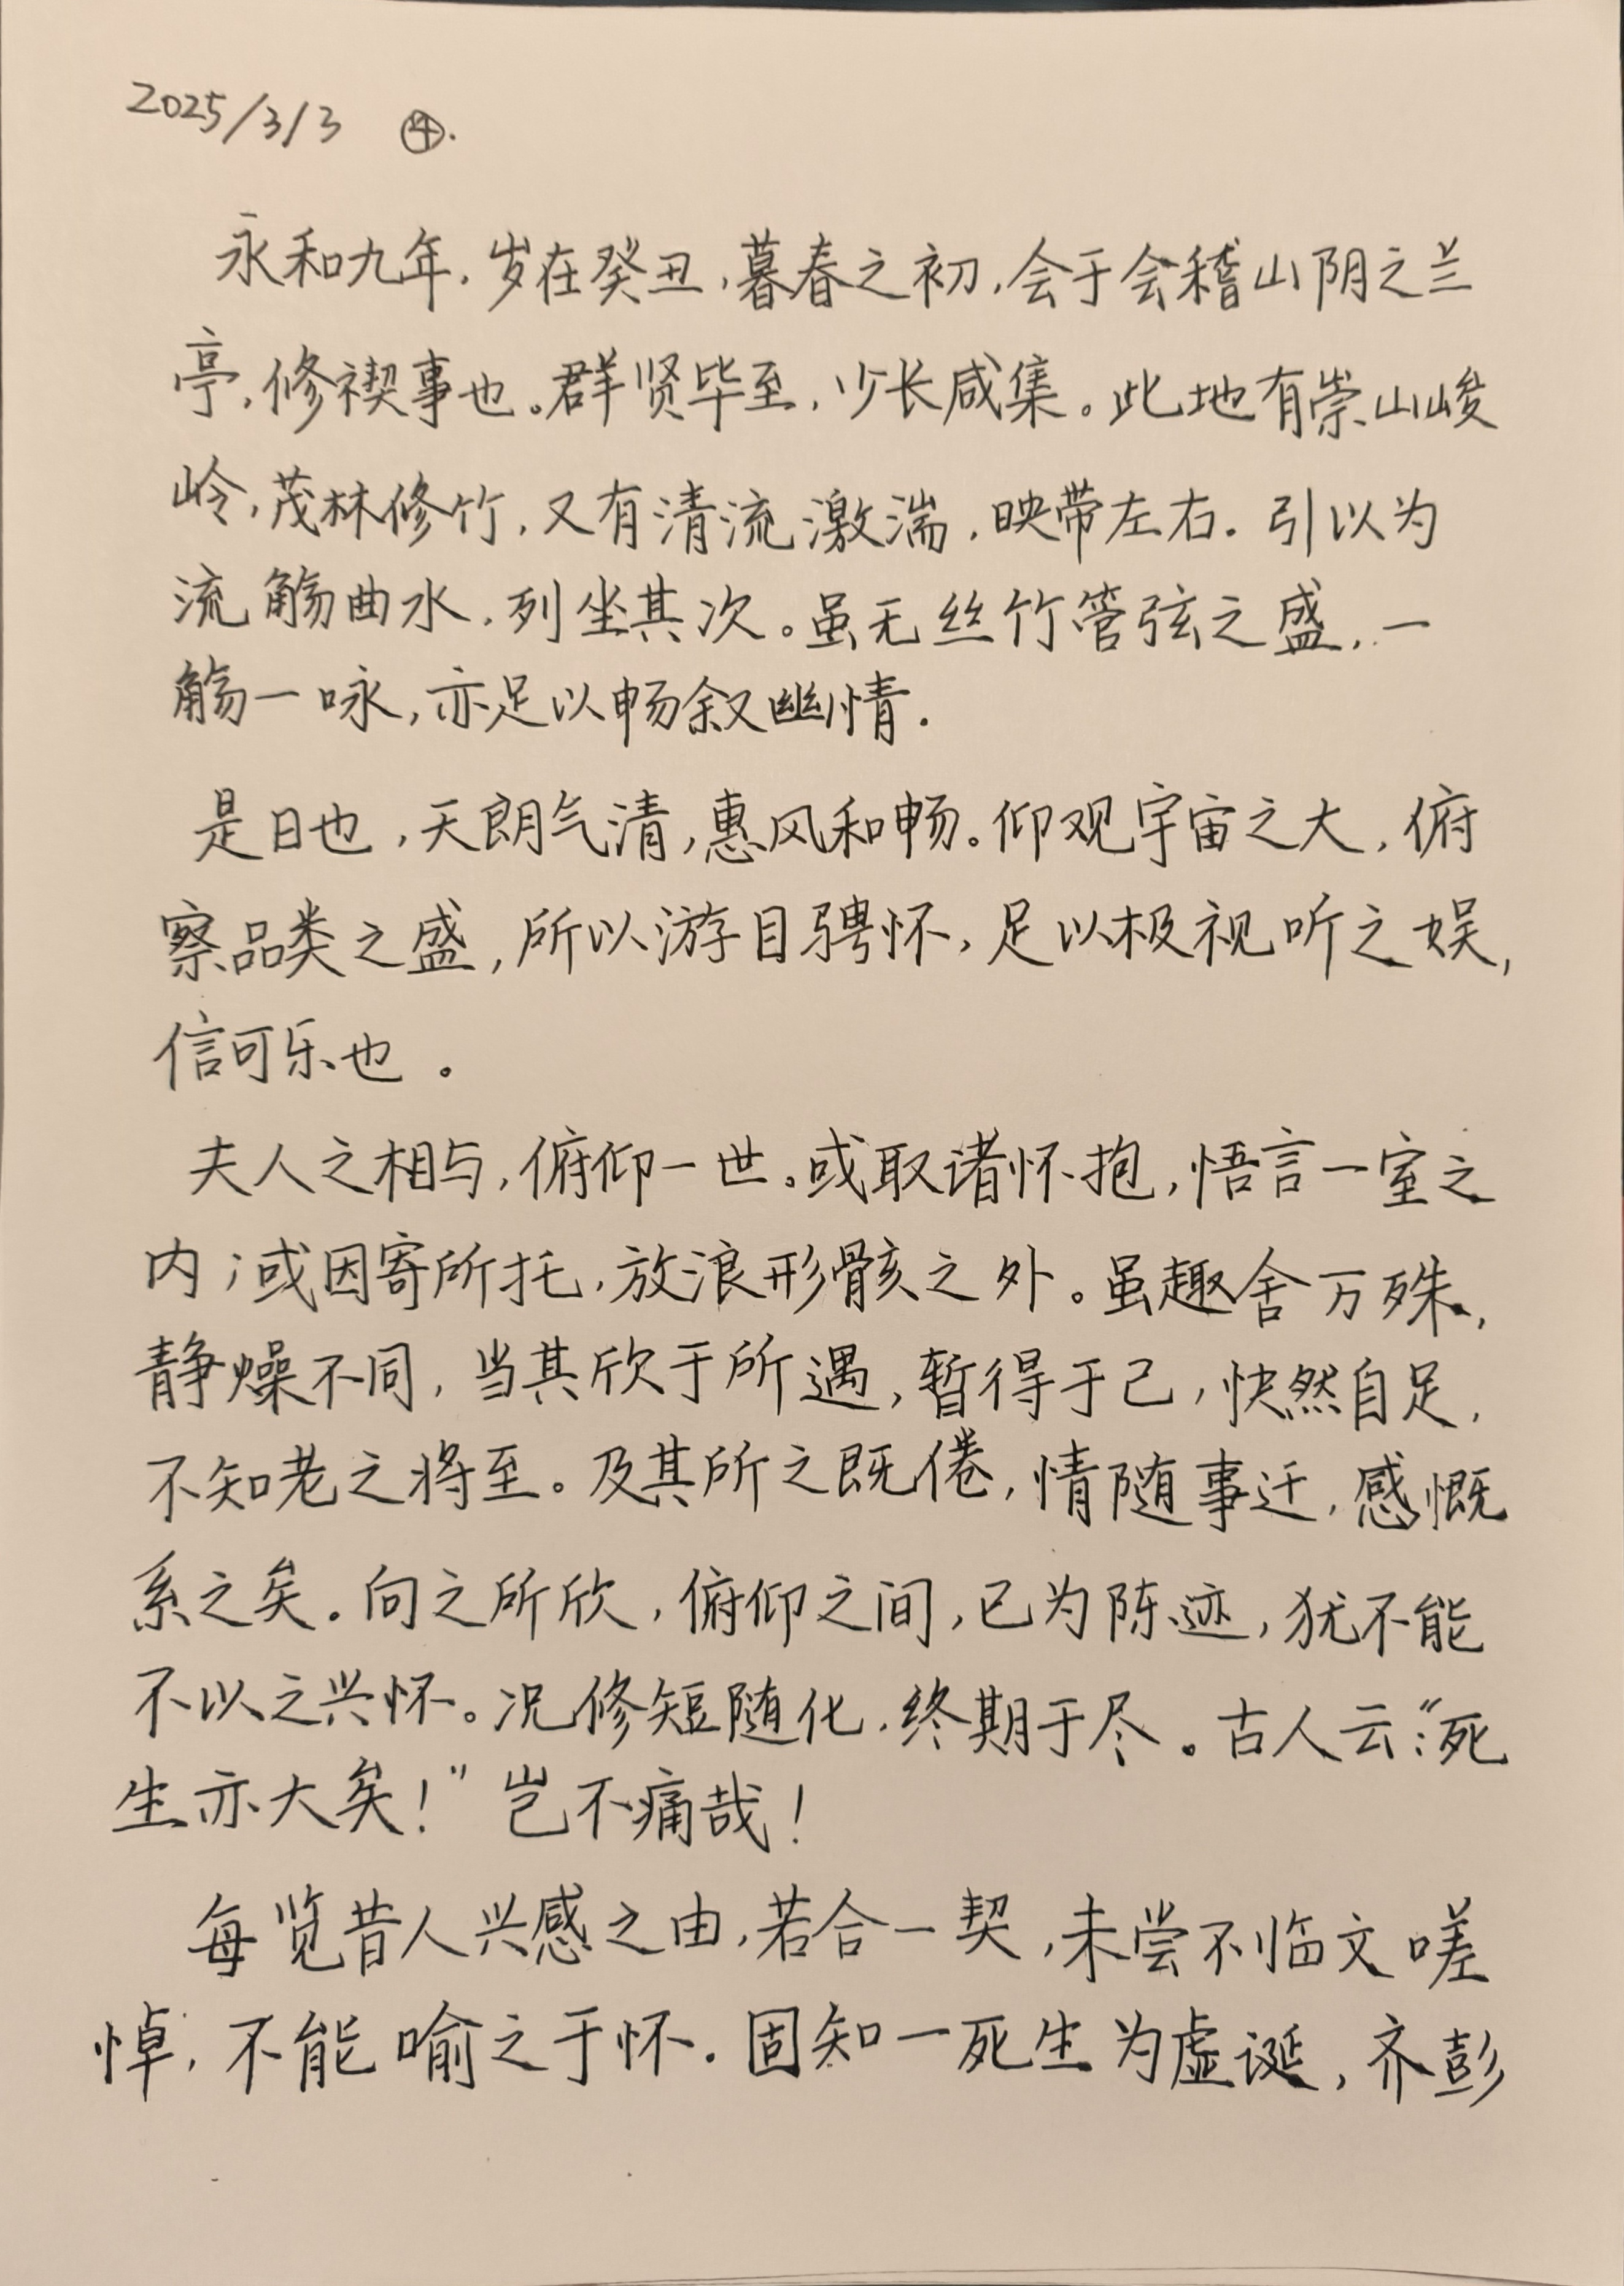 2025/3/3 ④.
永和九年,岁在癸丑,暮春之初,会于会稽山阴之兰
亭,修禊事也。群贤毕至,少长咸集。此地有崇山峻
岭,茂林修竹,又有清流激湍,映带左右.引以为
流觞曲水,列坐其次。虽无丝竹管弦之盛,一
觞一咏,亦足以畅叙幽情.
是日也,天朗气清,惠风和畅。仰观宇宙之大,俯
察品类之盛,所以游目骋怀,足以极视听之娱,
信可乐也。
夫人之相与,俯仰一世。或取诸怀抱,悟言一室之
内;或因寄所托,放浪形骸之外。虽趣舍万殊,
静燥不同,当其欣于所遇,暂得于己,快然自足,
不知老之将至。及其所之既倦,情随事迁,感慨
系之矣。向之所欣,俯仰之间,已为陈迹,犹不能
不以之兴怀。况修短随化,终期于尽。古人云:“死
生亦大矣!”岂不痛哉!
每览昔人兴感之由,若合一契,未尝不临文嗟
悼,不能喻之于怀.固知一死生为虚诞,齐彭